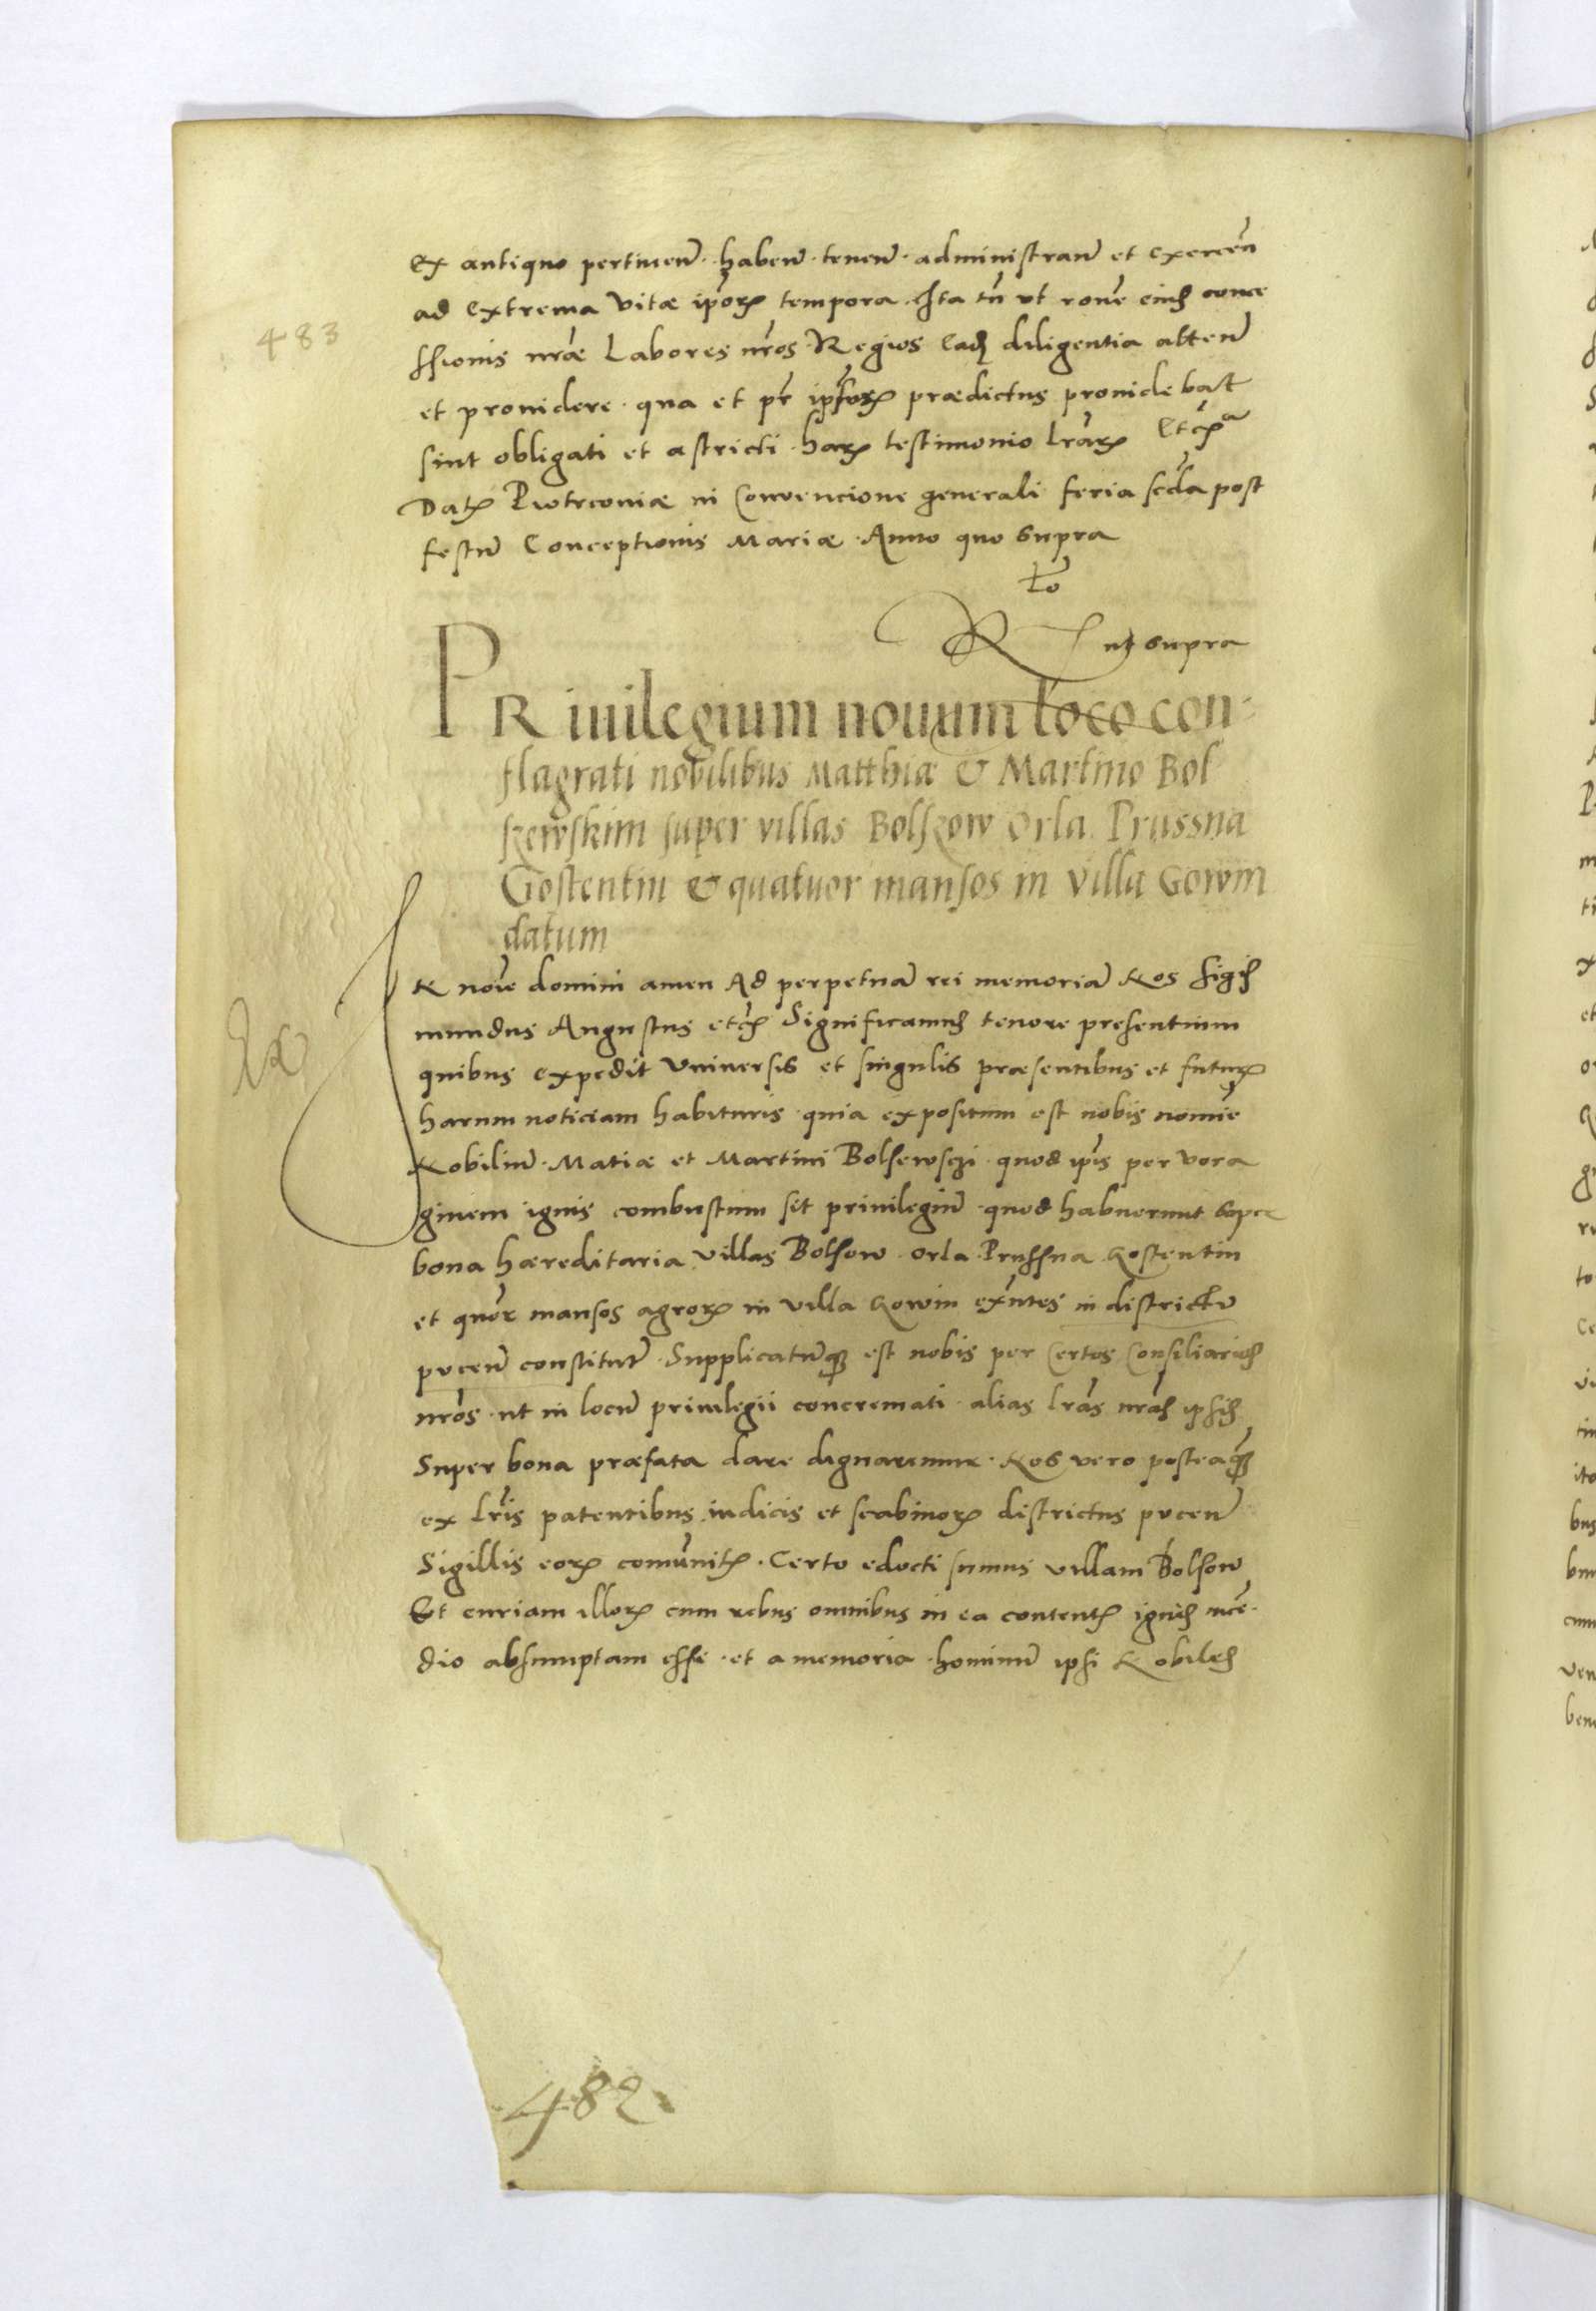 ex antiquo pertinen̄ haben̄ tenen̄ administran̄ et exercen̄
ad extrema vitæ ip̄orꝝ tempora Ita tn̄ vt ron̄e eius conce
ssionis nr̄æ Labores nr̄os Regios eadꝫ diligentia atten̄
et prouidere qua et pr̄ ipsorꝝ prædictus prouidebat
sint obligati et astricti harꝝ testimonio lr̄arꝝ Etcꝭ̄
483
Datꝭ Piotrcouiæ in Convencione generali feria scd̄a post
festū Conceptionis Mariæ Anno quo supra
R ut supra
PRiuilegium nouum loco con-
flagrati nobilibus Matthiæ & Martino Bol
szewskim super villas Bolszow Orla Prussna
Gostentin & quatuor mansos in villa Gowin
datum
IN noīe domini amen Ad perpetuā rei memoriā Nos Sigis
mundus Augustus etcꝭ̄ Significamus tenore presentium
quibus expedit vniuersis et singulis præsentibus et futurꝭ
harum noticiam habituris quia expositum est nobis nomīe
Nobiliū Matiæ et Martini Bolsewsczi quod ip̄is per vora
ginem ignis combustum sit priuilegiū quod habuerunt super
bona hæreditaria villas Bolsow Orla Prussna Gostentin
et quōr mansos agrorꝝ in villa Gowin ex̄ntes in districtu
pucen̄ constitut̄ Supplicatūqꝫ est nobis per Certos Consiliarios
nr̄os ut in locū priuilegii concremati alias lr̄as nr̄as ipsis
Super bona præfata dare dignaremur Nos vero posteaqꝫ̄
ex lr̄is patentibus iudicis et scabinorꝝ districtus pucen̄
Sigillis eorꝝ comūnitꝭ Certo edocti sumus villam Bolsow
Et curiam illorꝝ cum rebus omnibus in ea contentꝭ ignis incē
dio absumptam esse et a memoria hominū ipsi Nobiles
482